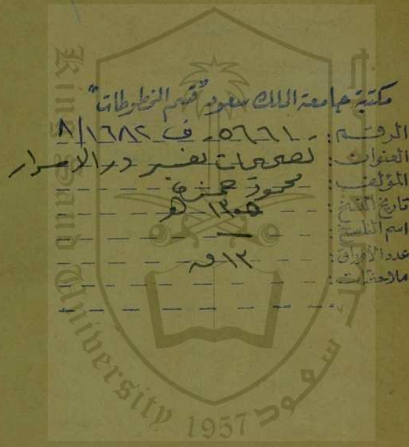 مكتبة جامعة الملك سعود "قسم المخطوطات"
الرقم: ٥٦٦١ ف ١٦٨٢/٨
العنوان: تصحيحات تفسير در الاسرار
المؤلف: محمود حمزة
تاريخ النسخ: ١٣٠٥ هـ
اسم الناسخ:
عدد الأوراق: ١٣ ق
ملاحظات:
King Saud University
1957